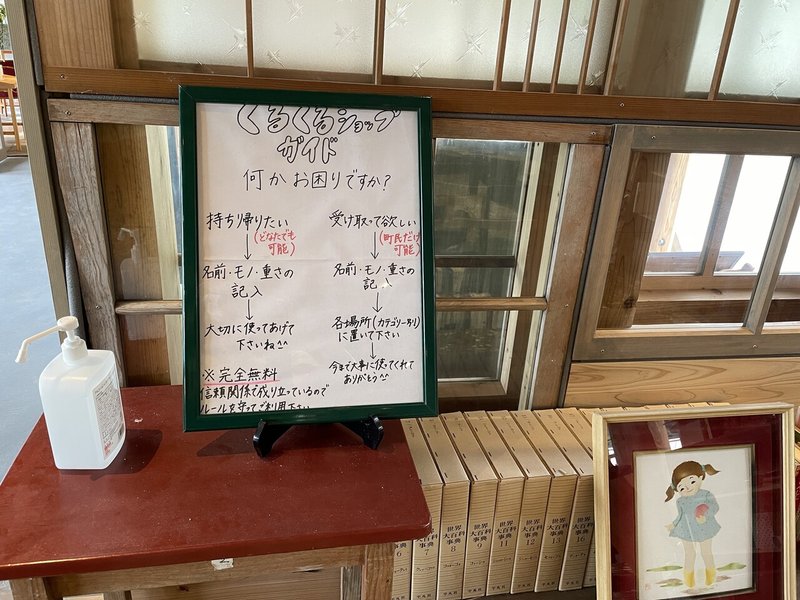 くるくるショップ
ガイド
何かお困りですか?
持ち帰りたい
(どなたでも
可能)
↓
名前・モノ・重さの
記入
↓
大切に使ってあげて
下さいね^^
※完全無料
信頼関係で成り立っているので
ルールを守ってご利用下さい
受け取って欲しい
(町民だけ
可能)
↓
名前・モノ・重さの
記入
↓
各場所(カテゴリー別)
に置いて下さい
↓
今まで大事に使ってくれて
ありがとう^^
世界
大百科
事典
6
世界
大百科
事典
7
世界
大百科
事典
8
世界
大百科
事典
9
世界
大百科
事典
11
世界
大百科
事典
12
世界
大百科
事典
13
世界
大百科
事典
16
平凡社